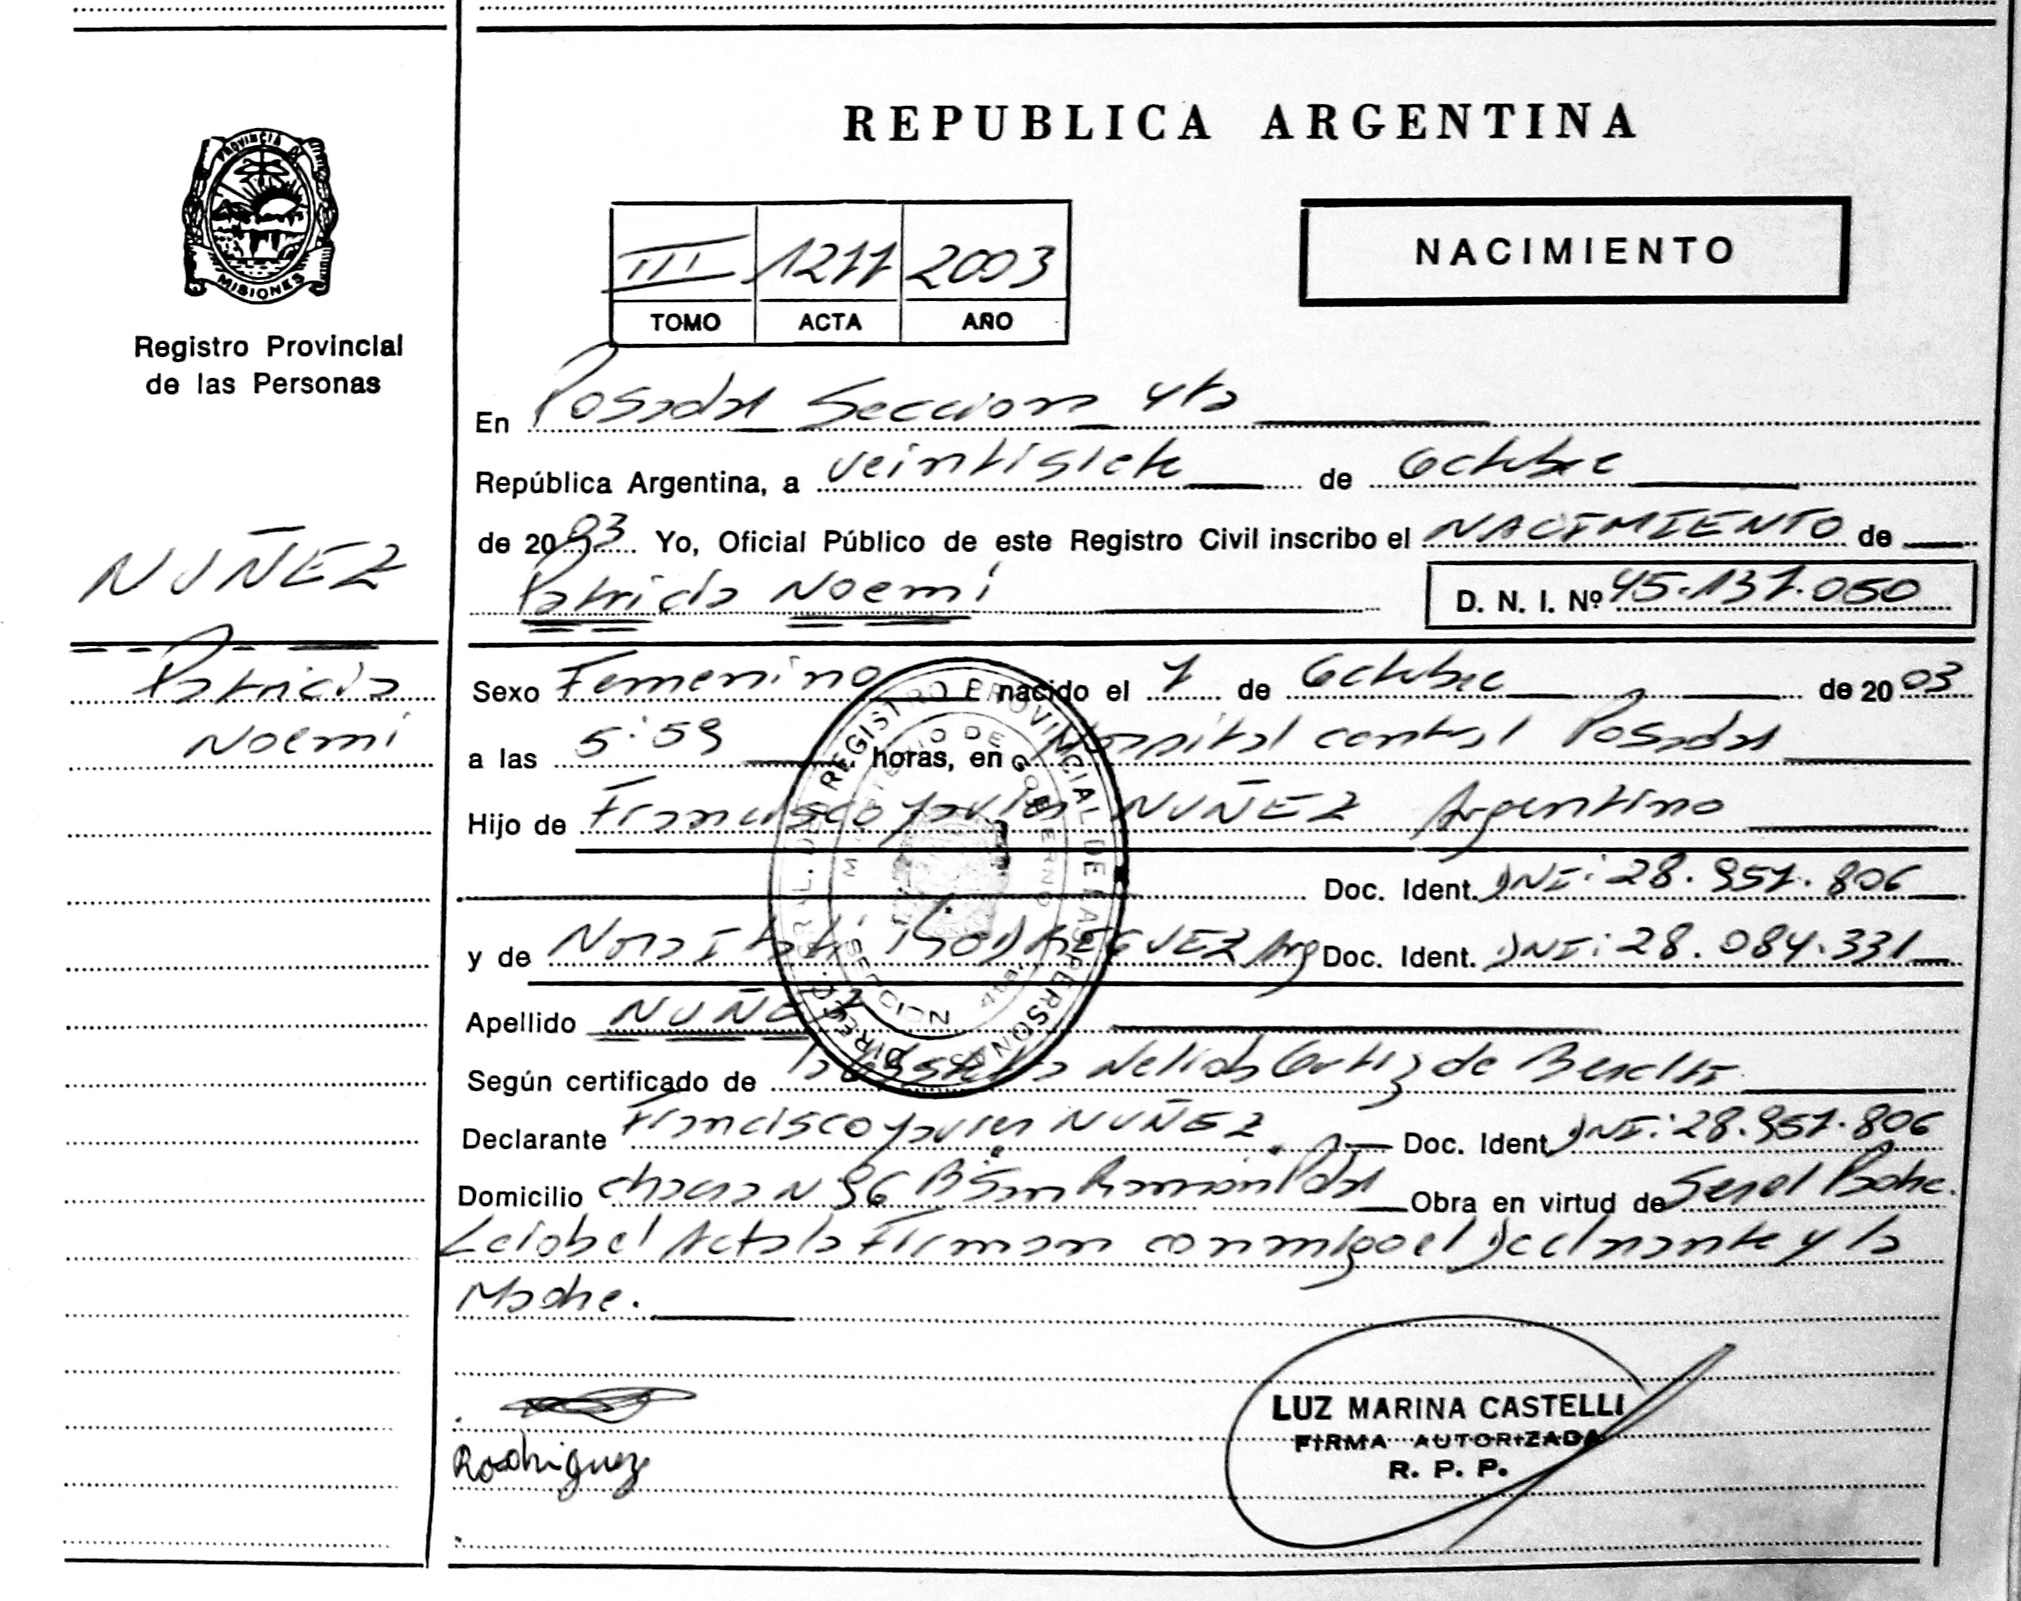 REPUBLICA ARGENTINA
PROVINCIA DE MISIONES
Registro Provincial
de las Personas
NACIMIENTO
III 1211 2003
TOMO ACTA AÑO
En Posadas Seccion 4ta
República Argentina, a veintisiete de Octubre
de 2003 Yo, Oficial Público de este Registro Civil inscribo el NACIMIENTO de
Patricia Noemí D. N. I. Nº 45.137.050
NUÑEZ
Patricia
Noemí
Sexo Femenino nacido el 1 de Octubre de 2003
a las 5:59 horas, en Hospital central Posadas
Hijo de Francisco Javier NUÑEZ Argentino
Doc. Ident. DNI: 28.957.806
y de Nora Itatí RODRIGUEZ Arg Doc. Ident. DNI: 28.084.331
Apellido NUÑEZ
Según certificado de la Nelida Ortiz de
Declarante Francisco Javier NUÑEZ Doc. Ident. DNI: 28.957.806
Domicilio chacra N 96 B San Ramon Pdas Obra en virtud de Ser el Padre.
Leida el Acta la Firman conmigo el Declarante y la
Madre.
Rodriguez
LUZ MARINA CASTELLI
FIRMA AUTORIZADA
R. P. P.
REGISTRO PROVINCIAL DE LAS PERSONAS